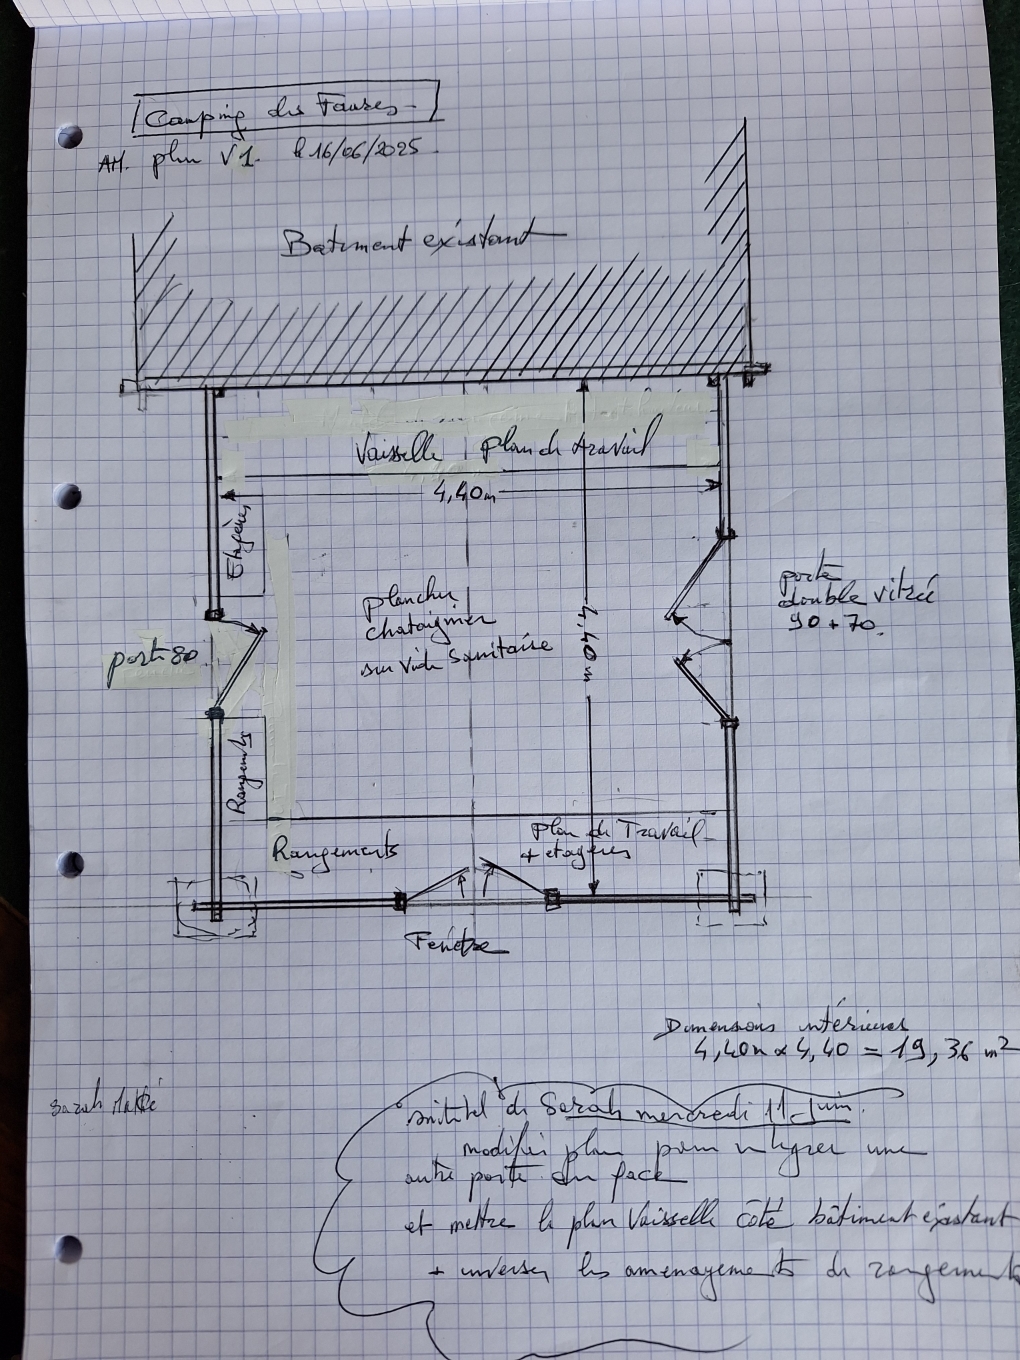 Camping des Faures.
AH. plan V1. le 16/06/2025.
Batiment existant
Vaisselle plan de travail
4,40m
Etagères
plancher
chataignier
sur vide sanitaire
4,40m
porte
double vitrée
90 + 70.
porte 80
Rangements
Rangements
Plan de Travail
+ etagères
Fenêtre
Dimensions intérieures
4,40m x 4,40 = 19,36 m²
Sarah
de Sarah mercredi 11 Juin.
modifier plan pour intégrer une
autre porte en face
et mettre le plan Vaisselle côté bâtiment existant
+ inverser les aménagements de rangements